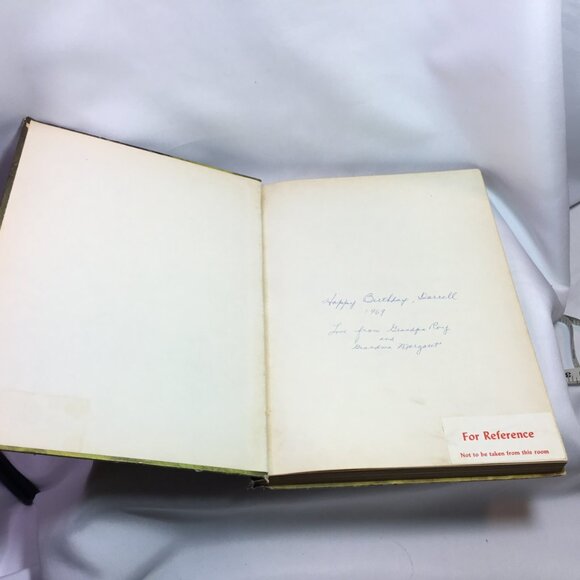 Happy Birthday, Darrell
1969
Love from Grandpa Roy
and
Grandma Margaret
For Reference
Not to be taken from this room